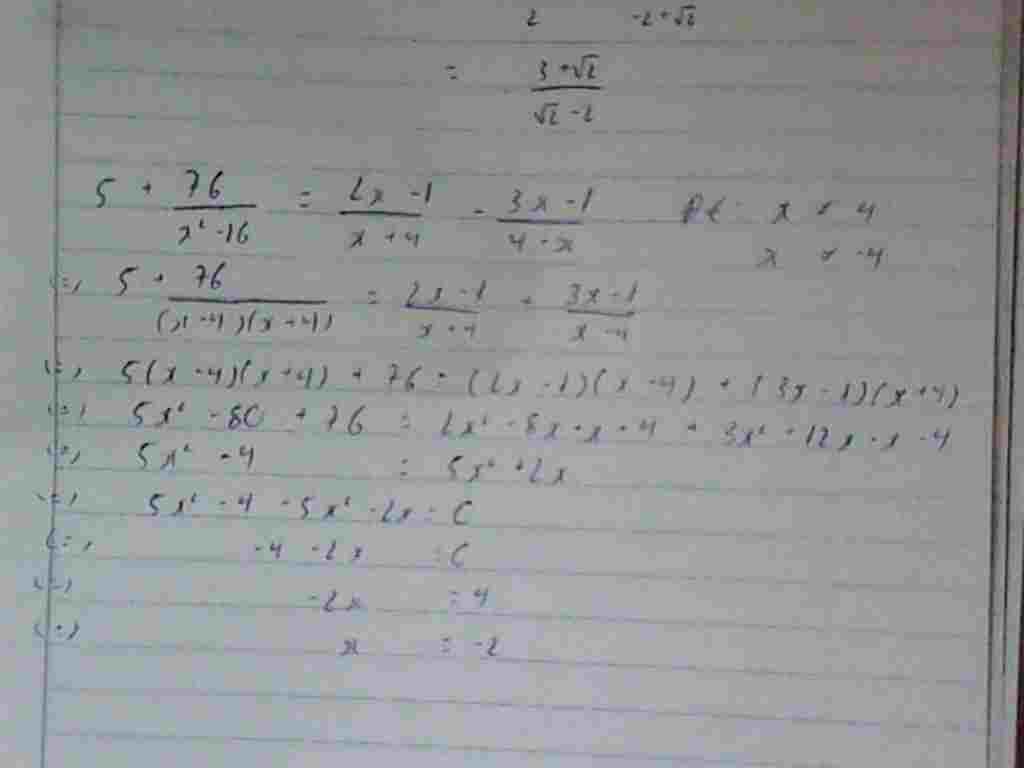 2 -2+√2
= (3+√2)/(√2-2)
5 + 76/(x²-16) = (2x-1)/(x+4) - (3x-1)/(4-x) x ≠ 4
x ≠ -4
(=) 5 + 76/((x-4)(x+4)) = (2x-1)/(x+4) + (3x-1)/(x-4)
(=) 5(x-4)(x+4) + 76 = (2x-1)(x-4) + (3x-1)(x+4)
(=) 5x² - 80 + 76 = 2x² - 8x - x + 4 + 3x² + 12x - x - 4
(=) 5x² - 4 = 5x² + 2x
(=) 5x² - 4 - 5x² - 2x = 0
(=) -4 - 2x = 0
(=) -2x = 4
(=) x = -2